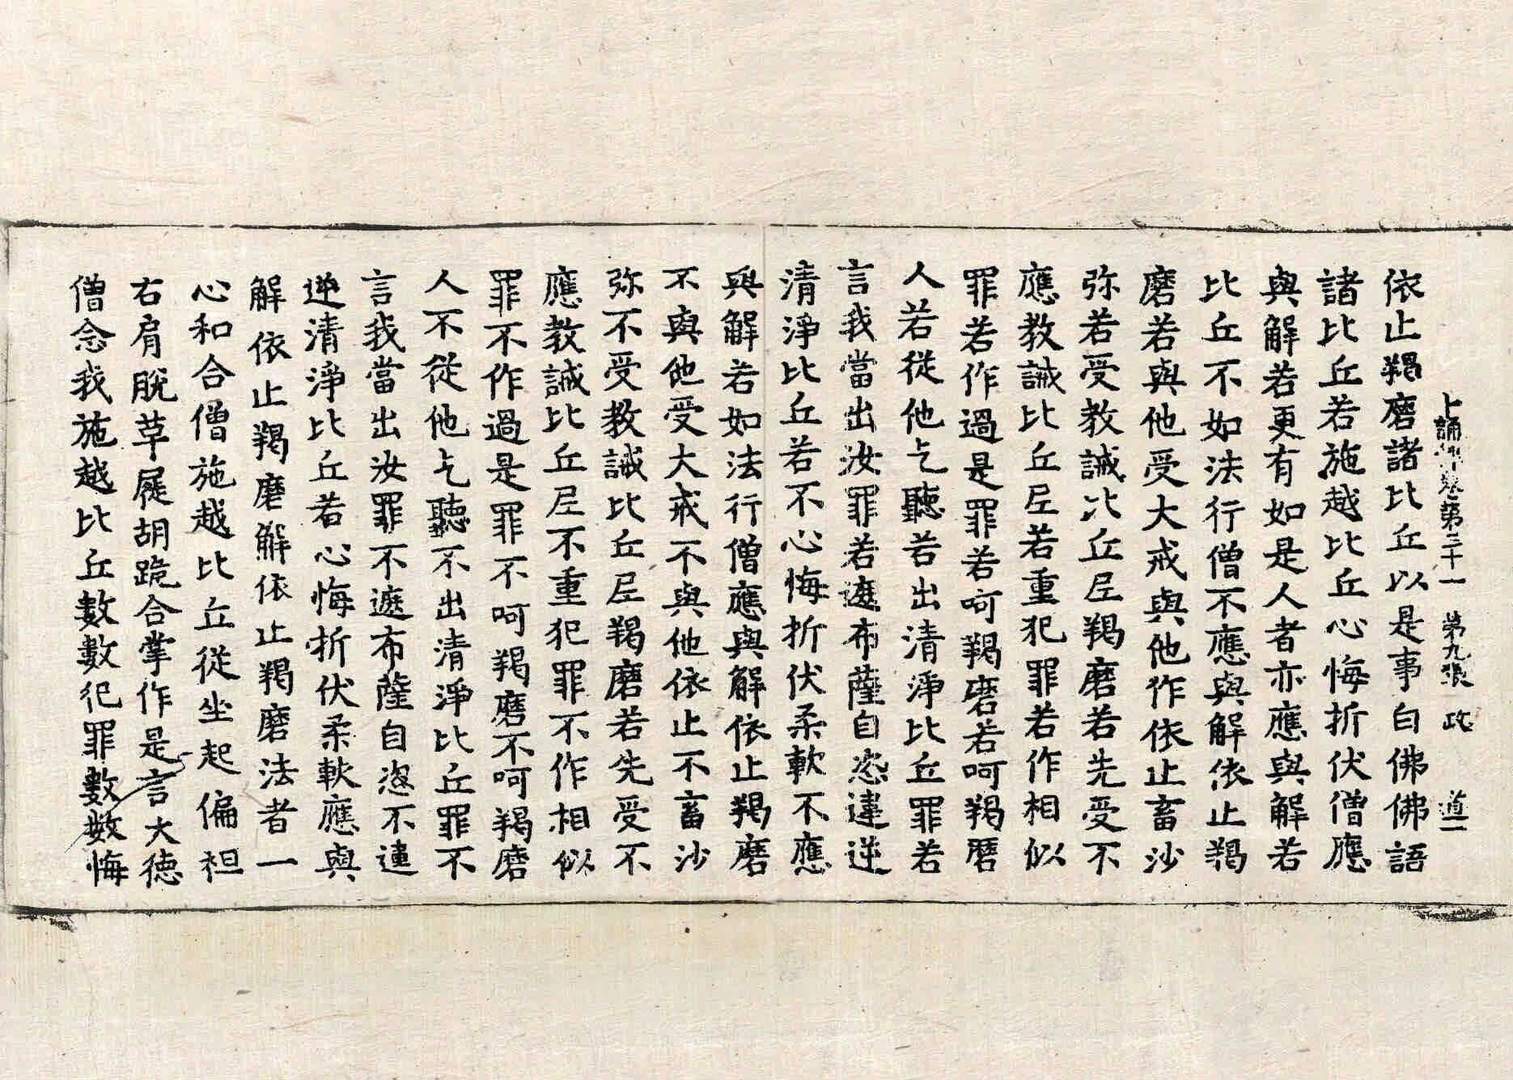 十誦律卷第三十一 第九張 政 道一
依止羯磨諸比丘以是事白佛佛語
諸比丘若施越比丘心悔折伏僧應
與解若更有如是人者亦應與解若
比丘不如法行僧不應與解依止羯
磨若與他受大戒與他作依止畜沙
弥若受教誡比丘尼羯磨若先受不
應教誡比丘尼若重犯罪若作相似
罪若作過是罪若呵羯磨若呵羯磨
人若從他乞聽若出清淨比丘罪若
言我當出汝罪若遮布薩自恣違逆
清淨比丘若不心悔折伏柔軟不應
與解若如法行僧應與解依止羯磨
不與他受大戒不與他依止不畜沙
弥不受教誡比丘尼羯磨若先受不
應教誡比丘尼不重犯罪不作相似
罪不作過是罪不呵羯磨不呵羯磨
人不從他乞聽不出清淨比丘罪不
言我當出汝罪不遮布薩自恣不違
逆清淨比丘若心悔折伏柔軟應與
解依止羯磨解依止羯磨法者一
心和合僧施越比丘從坐起偏袒
右肩脫草屣胡跪合掌作是言大德
僧念我施越比丘數數犯罪數數悔